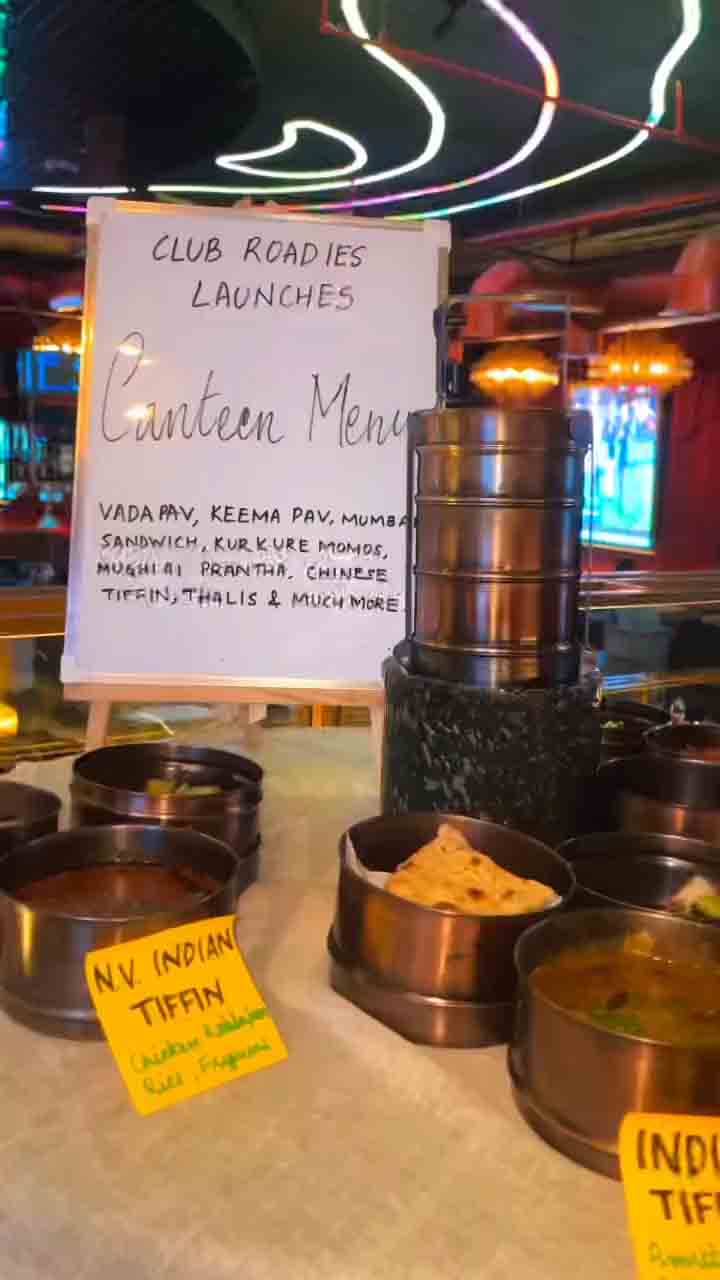 CLUB ROADIES
LAUNCHES
Canteen Menu
VADA PAV, KEEMA PAV, MUMBA
SANDWICH, KURKURE MOMOS,
MUGHLAI PRANTHA, CHINESE
TIFFIN, THALIS & MUCH MORE.
N.V. INDIAN
TIFFIN
Chicken
Rice,
INDI
TIF